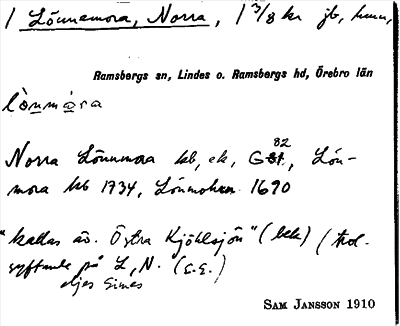 1 Lönnemora, Norra, 1 3/8 kr jb, hmn,
Ramsbergs sn, Lindes o. Ramsbergs hd, Örebro län
lònmàra
Norra Lönnmora kb, ek, G82, Lön-
mora kb 1734, Lönmohren 1690
"kallas äv. Östra Kjöhlsjön" (bek) (trol.
syftande på L, N. (G.E.)
eljes Gimes
SAM JANSSON 1910